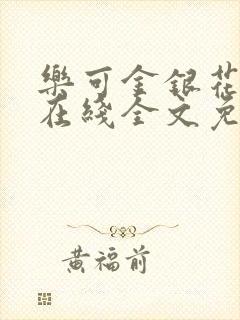 樂可金銀花
在綫全文免
黃福前